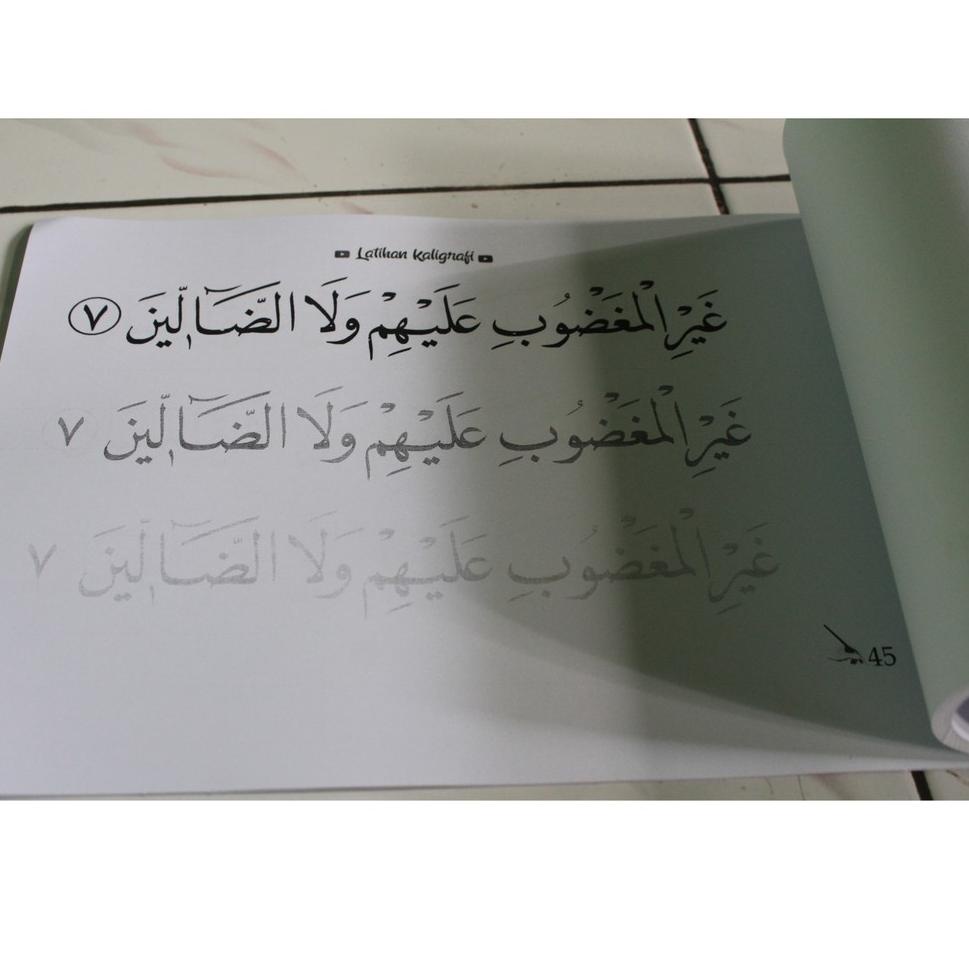 Latihan Kaligrafi
غَيْرِ الْمَغْضُوبِ عَلَيْهِمْ وَلَا الضَّآلِّينَ ٧
غَيْرِ الْمَغْضُوبِ عَلَيْهِمْ وَلَا الضَّآلِّينَ ٧
غَيْرِ الْمَغْضُوبِ عَلَيْهِمْ وَلَا الضَّآلِّينَ ٧
45